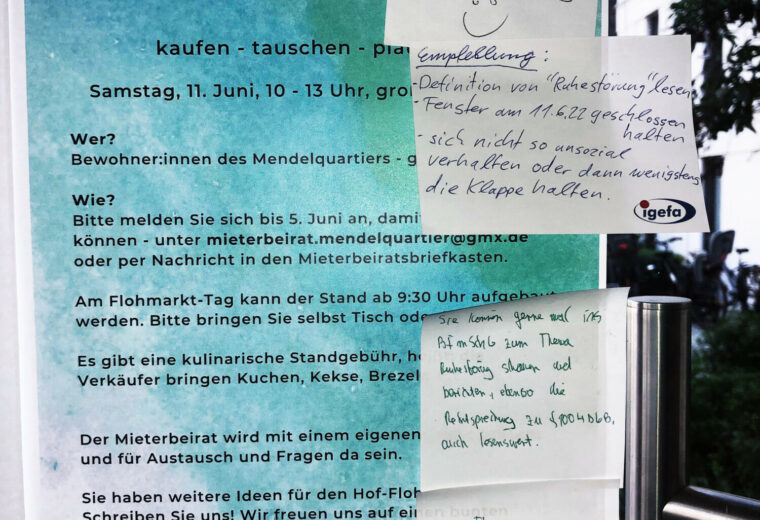 kaufen - tauschen - pla
Samstag, 11. Juni, 10 - 13 Uhr, gro
Wer?
Bewohner:innen des Mendelquartiers - g
Wie?
Bitte melden Sie sich bis 5. Juni an, dami
können - unter mieterbeirat.mendelquartier@gmx.de
oder per Nachricht in den Mieterbeiratsbriefkasten.
Am Flohmarkt-Tag kann der Stand ab 9:30 Uhr aufgebaut
werden. Bitte bringen Sie selbst Tisch ode
Es gibt eine kulinarische Standgebühr, h
Verkäufer bringen Kuchen, Kekse, Brezel
Der Mieterbeirat wird mit einem eigenen
und für Austausch und Fragen da sein.
Sie haben weitere Ideen für den Hof-Floh
Schreiben Sie uns! Wir freuen uns auf einen bunten
Empfehlung:
- Definition von "Ruhestörung" lesen
- Fenster am 11.6.22 geschlossen
halten
- sich nicht so unsozial
verhalten oder dann wenigstens
die Klappe halten.
igefa
Sie können gerne mal ins
zum Thema
Ruhestörung schauen und
ebenso die
Rechtsprechung zu § 1004 BGB,
auch lesenswert.